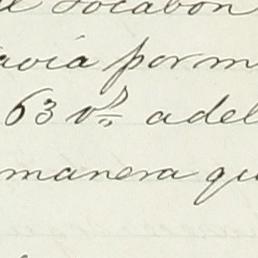 el Socabon
avia por m
63 vs. adel
manera qu